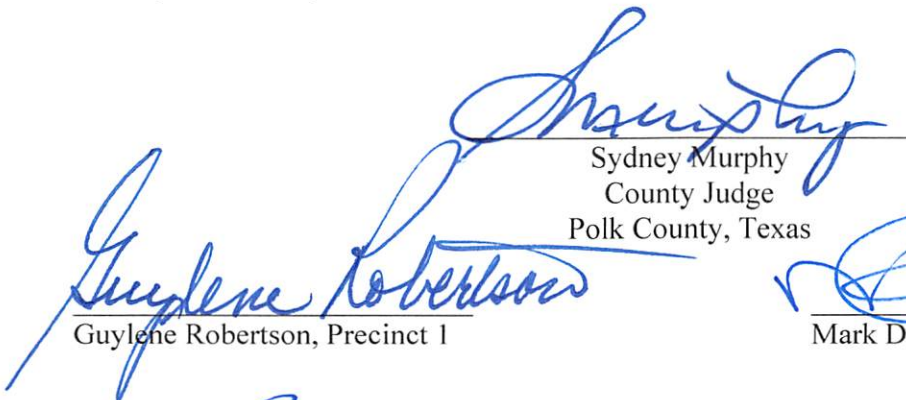 SMurphy
Sydney Murphy
County Judge
Polk County, Texas
Guylene Robertson
Guylene Robertson, Precinct 1
Mark D